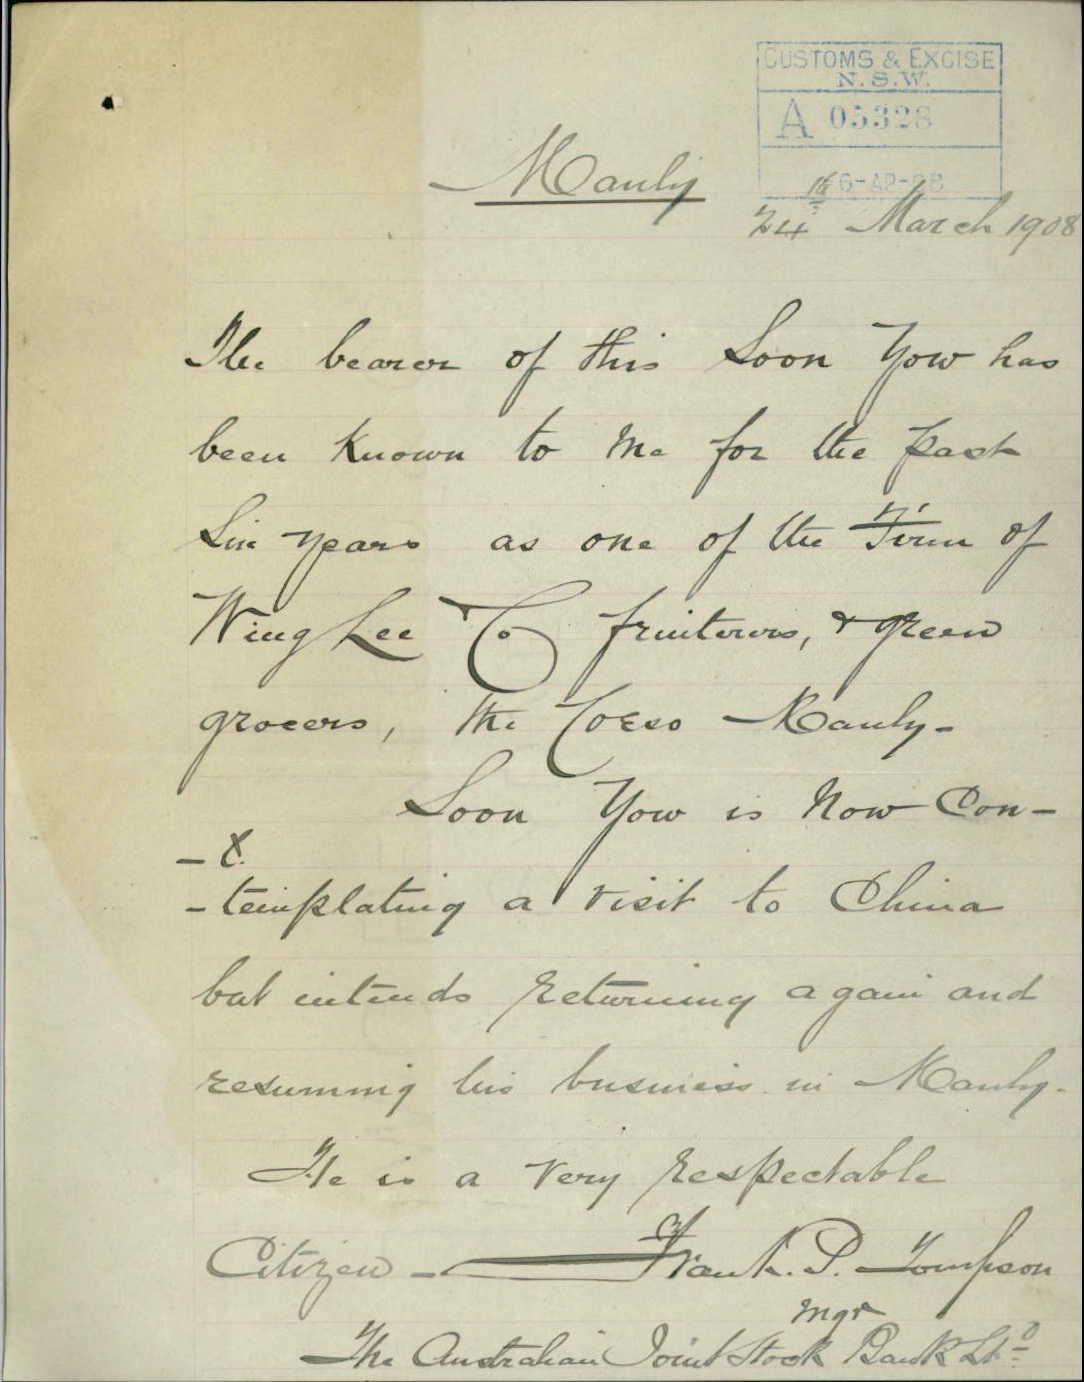 CUSTOMS & EXCISE
N.S.W.
A 05328
Manly
24th March 1908
The bearer of this Soon Yow has
been known to me for the past
Six years as one of the Firm of
Wing Lee Co fruiterers, & green
grocers, the Corso Manly-
Soon Yow is now Con-
-templating a visit to China
but intends returning again and
resuming his business in Manly.
He is a very respectable
Citizen - Frank. P. Tompson
Mgr
The Australian Joint Stock Bank Ltd